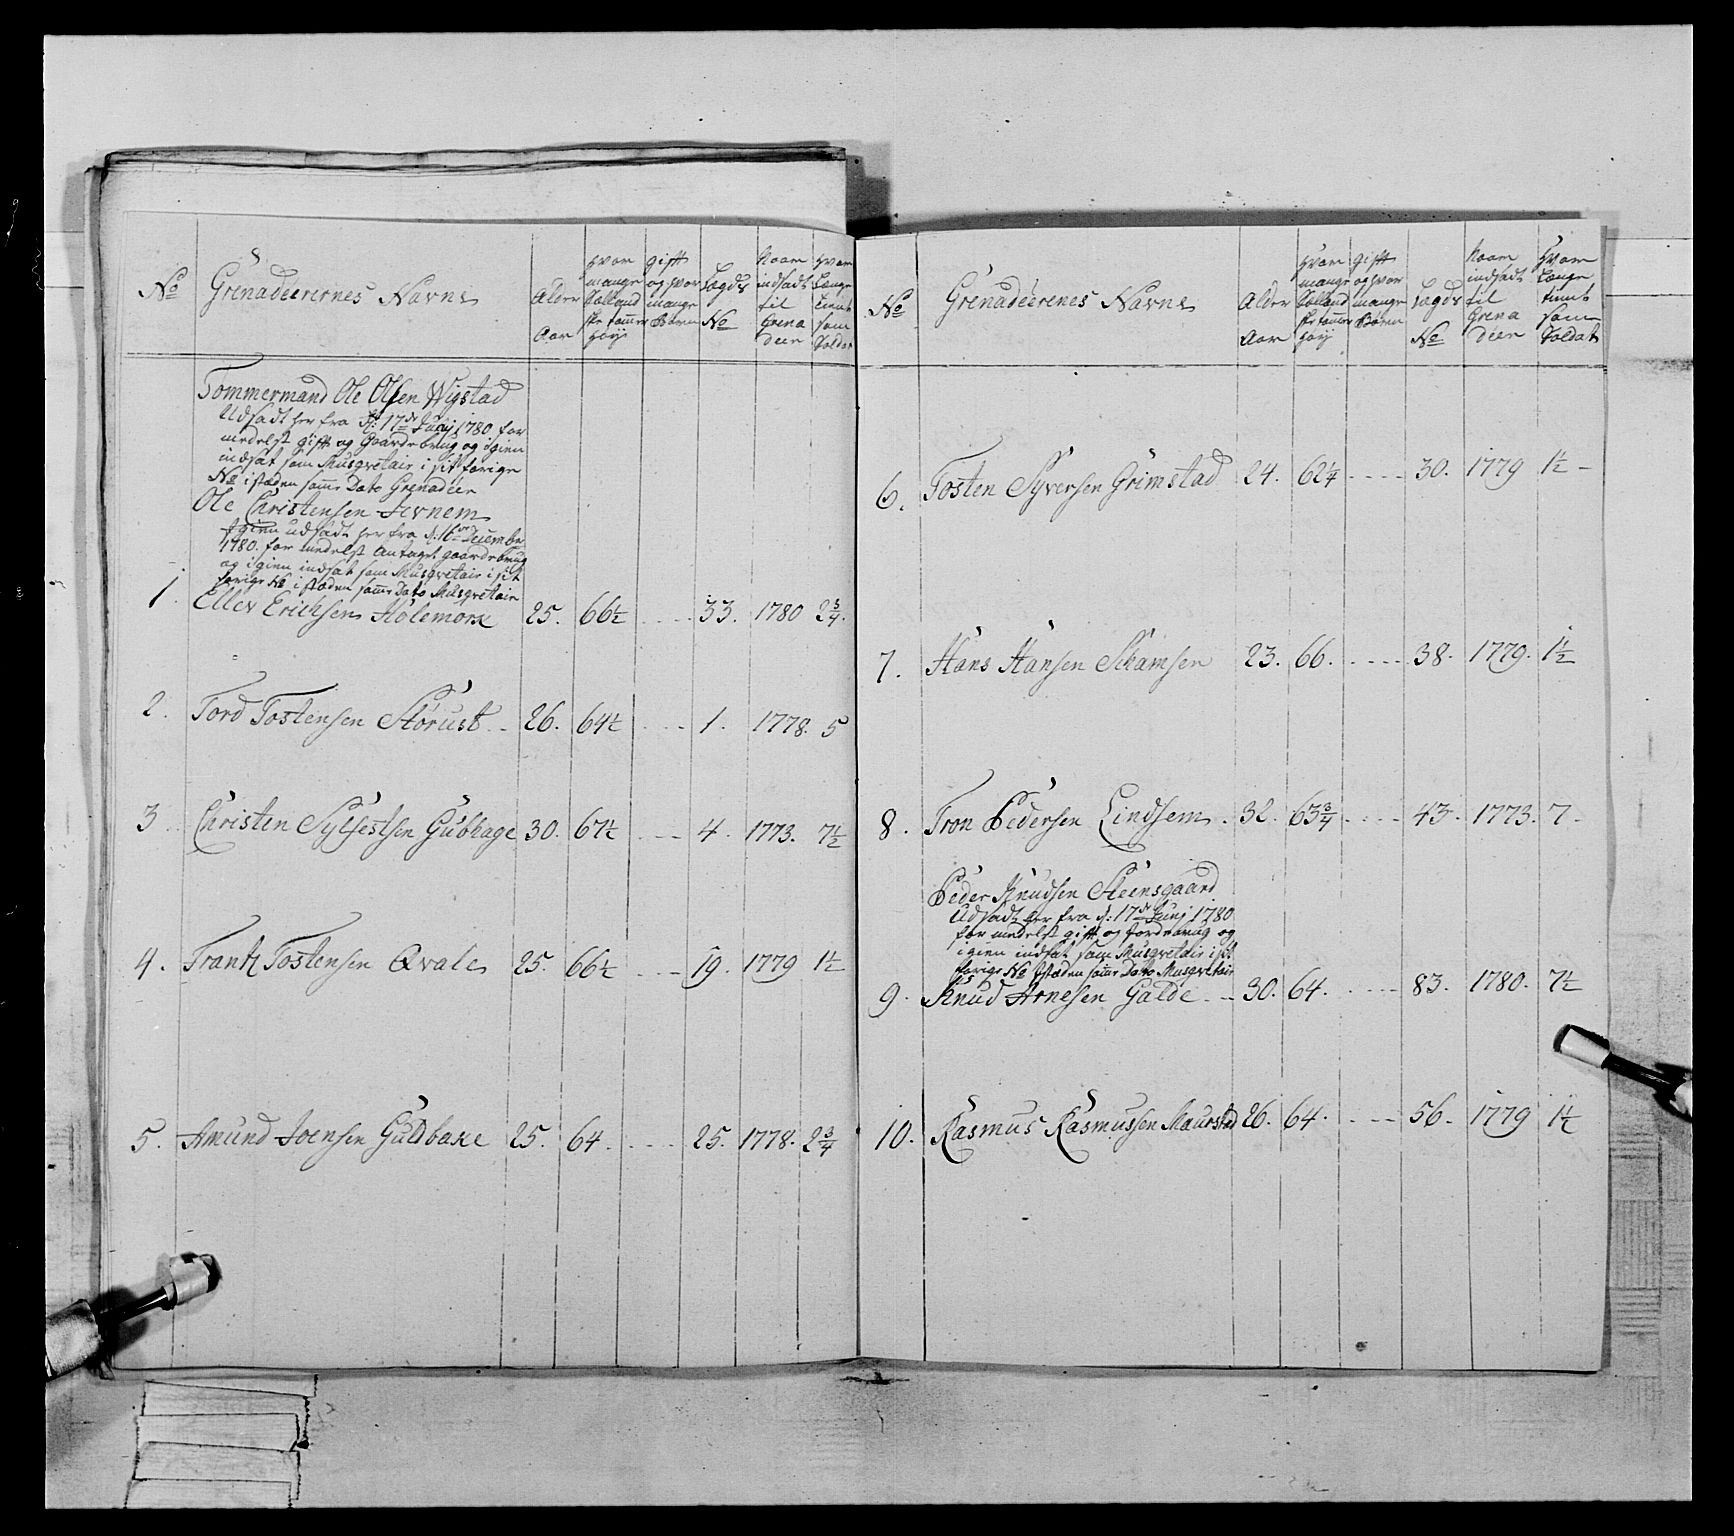 No Grenadeerernes Navne Alder Aar Hvor mange Sælland ske tommer Høÿ gift og hvor mange Børn Lægds No Naar indsadt til Grena deer Hvor Længe tient som Soldat
Tommermand Ole Olsen Wigstad
Udsadt her fra d: 17de Junj 1780 for
medelst gift og Gaardebrug og igien
indsat som Musqvetair i sit forige
No i stæden samme Dato Grenadeer
Ole Christensen Jevnem
Igien udsadt her fra d: 16de December
1780. for medelst Antaget gaardebrug
og igien indsat som Musqvetair i sit
forige No i stæden samme Dato Musqvetair
1. Ellev Erichsen Holemork 25. 66½ ---- 33. 1780 2¾.
2. Tord Tostensen Störust .. 26. 64½ ---- 1. 1778. 5
3. Christen Sylfestsen Gulbhage 30. 67½ ---- 4. 1773. 7½
4. Frantz Tostensen Qvale 25. 66½ ---- 19. 1779 1½
5. Amund Joensen Guldbake 25. 64. ---- 25. 1778. 2¾
No Grenadeerenes Navne Alder Aar Hvor mange Sælland ske tommer Høÿ gift og hvor mange Børn Lægds No Naar indsadt til Grena deer Hvor Længe tient som Soldat
6. Tosten Syversen Grimstad 24. 62¼ ---- 30. 1779 1½ -
7. Hans Hansen Skamsen 23. 66. ---- 38. 1779. 1½
8. Tron Pedersen Lindsem . 32. 63¾ ---- 43. 1773. 7 -
Peder Knudsen Steensgaard
Udsadt her fra d: 17de Junj 1780
for medelst gift og Jordebrug og
igien indsat som Musqvetair i sit
forige No I stæden samme Dato Musqvetair
9. Knud Arnesen Galde .. 30. 64. ---- 83. 1780. 7½
10. Rasmus Rasmussen Maurstad 26. 64. ---- 56. 1779 1½